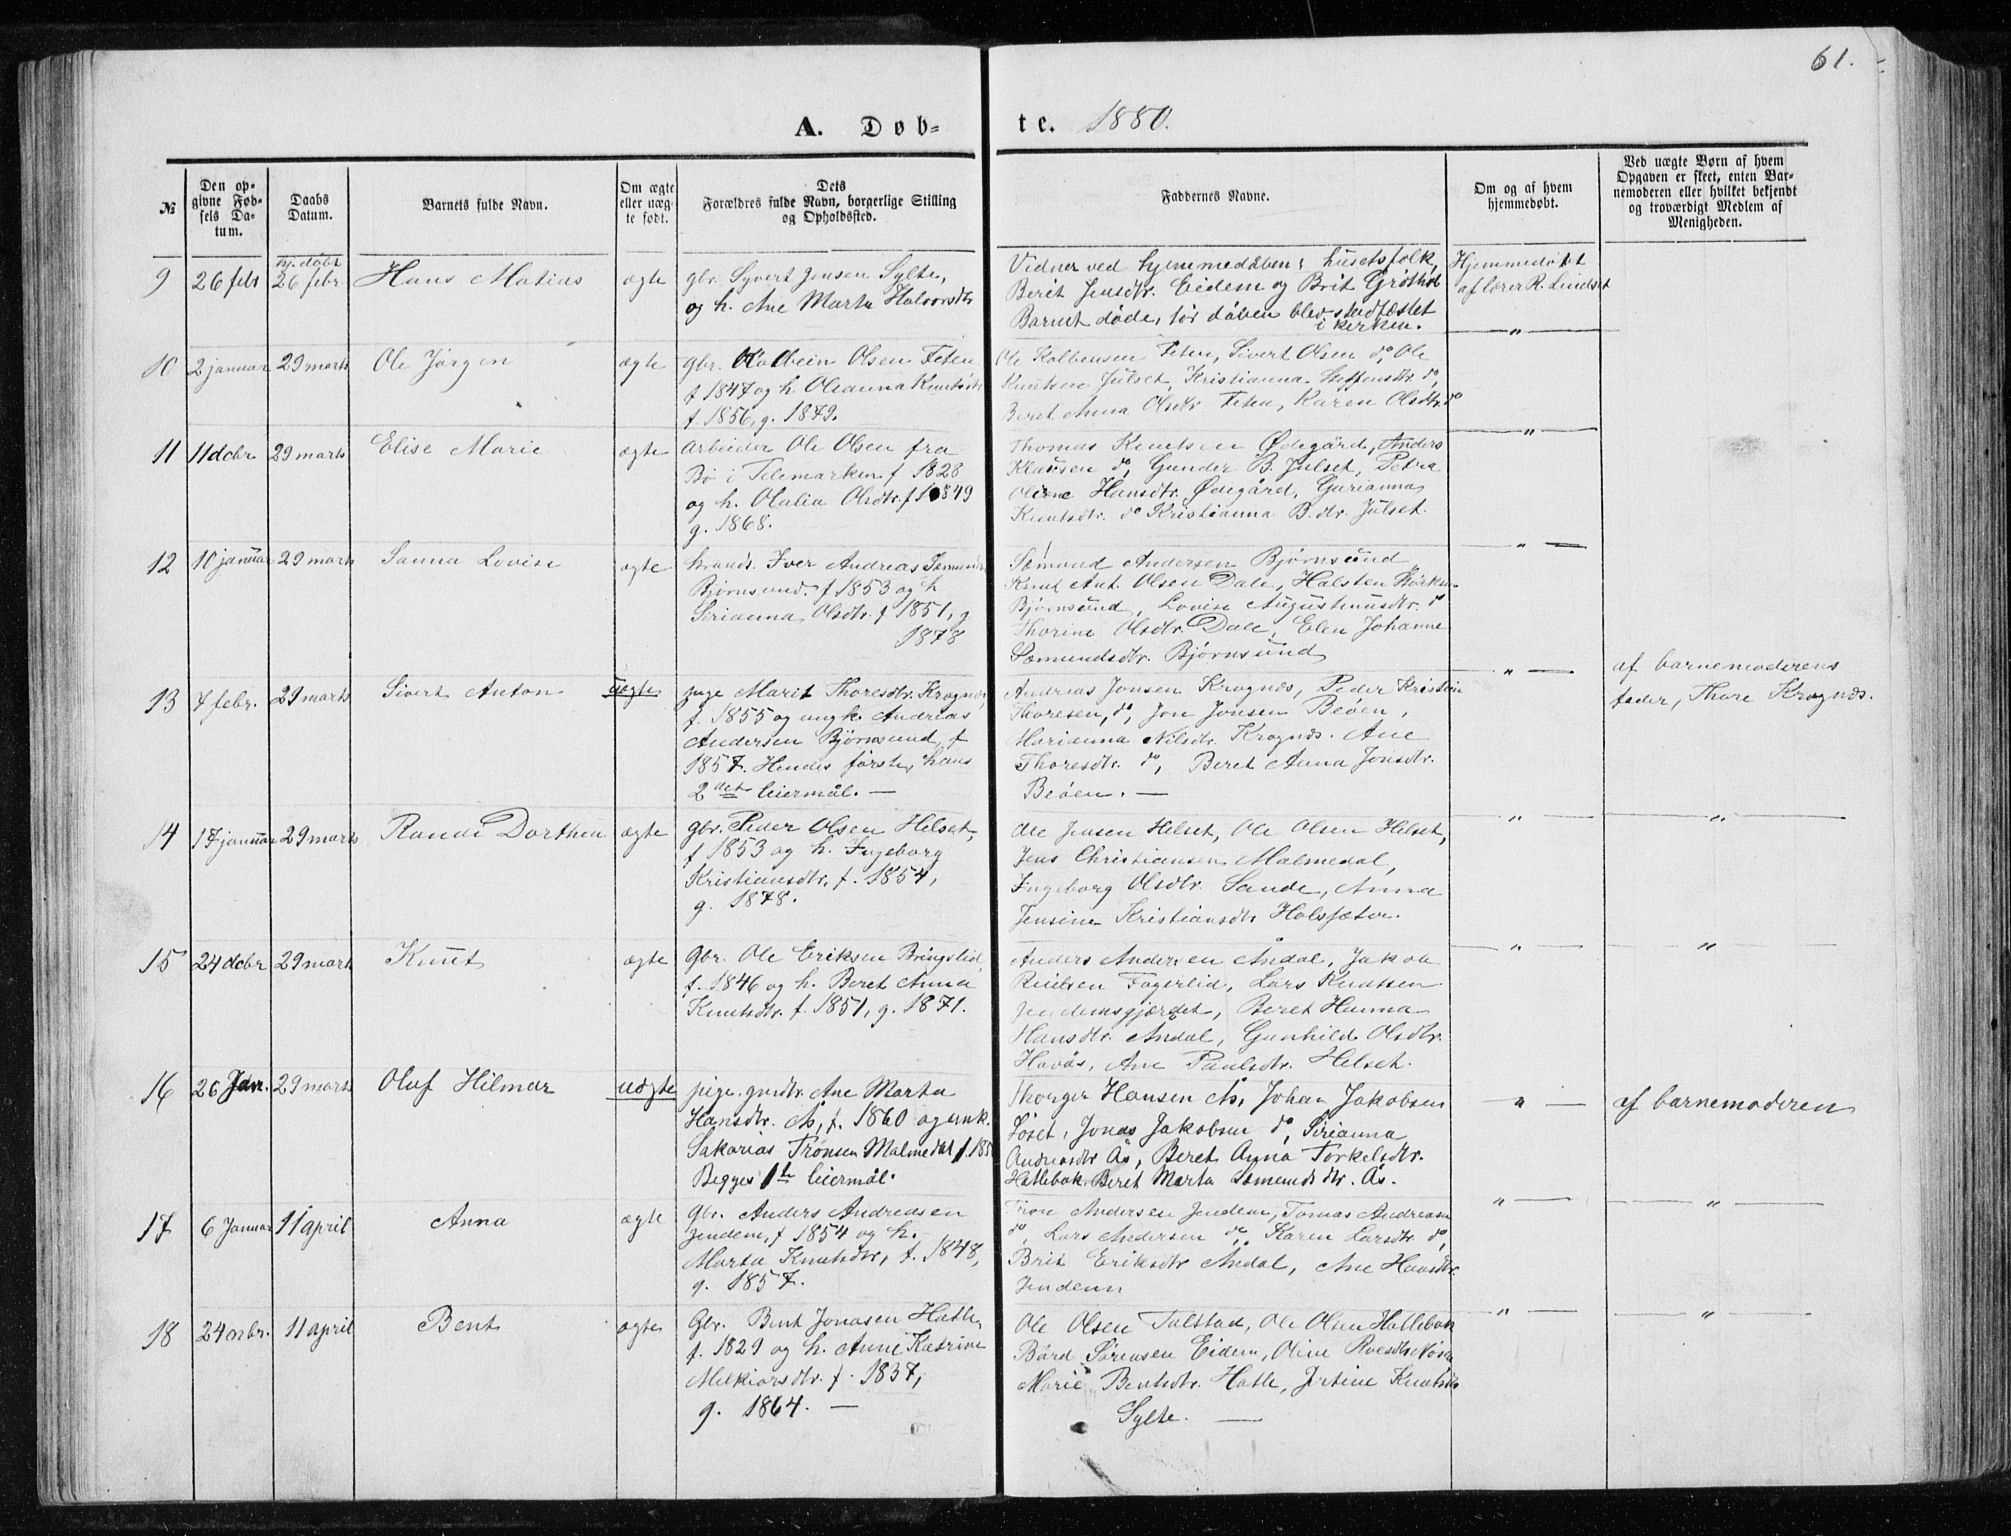 61.
A. Døb-
te. 1880.
№
Den op-
givne Fød-
sels Da-
tum.
Daabs
Datum.
Barnets fulde Navn.
Om ægte
eller uæg-
te født.
Dets
Forældres fulde Navn, borgerlige Stilling
og Opholdsted.
Faddernes Navne.
Om og af hvem
hjemmedøbt.
Ved uægte Børn af hvem
Opgaven er skeet, enten Bar-
nemoderen eller hvilket bekjendt
og troværdigt Medlem af
Menigheden.
9
26 febr
hj. døbt
26 febr
Hans Matias
ægte
gbr. Syvert Jensen Sylte,
og h. Ane Marta Halvorsdtr
Vidner ved hjemmedåben: husetsfolk,
Berit Jensdtr. Eidem og Brit
Barnet døde, før dåben blev stadfæstet
i kirken.
Hjemmedøbt
af lærer R. Lindset
"
10
2 januar
29 marts
Ole Jørgen
ægte
gbr. Kolbein Olsen Teten
f 1847 og h. Oleanna Knutsdtr
f. 1856, g. 1879.
Ole Kolbensen Teten, Sivert Olsen do, Ole
Knutsen Julset, Kristianna Steffensdtr. do,
Beret Anna Olsdtr Teten, Karen Olsdtr. do
"
11
11 dcbr
29 marts
Elise Marie
ægte
Arbeider Ole Olsen fra
Bø i Telemarken f 1828
og h. Olalia Olsdtr. f 1849
g. 1868.
Thomas Knutsen Ødegård, Anders
Klausen do, Gunder B. Julset, Petra
Oline Hansdtr. Ødegård, Gurianna
Knutsdtr. do Kristianna B. dtr. Julset
"
12
10 januar
29 marts
Sanna Lovise
ægte
strands. Iver Andreas Sømunds
Bjørnsund. f 1853 og h
Serianna Olsdtr. f 1851, g
1878
Sømund Andersen Bjørnsund
Knut Ant. Olsen Dale, Halsten
Bjørnsund, Lovise Augustinusdtr. do
Thorine Olsdtr. Dale, Elen Johanne
Sømundsdtr. Bjørnsund
"
13
7 febr.
29 marts
Sivert Anton
uægte
pige Marit Thoresdtr. Krognæs,
f. 1855 og ungk. Andreas
Andersen Bjørnsund, f
1857. Hendes første, hans
2det leiermål. —
Andreas Jonsen Krognæs, Peder Kristian
Thoresen, do, Jon Jonsen Beøen,
Marianna Nilsdtr. Krognæs. Ane
Thoresdtr. do, Beret Anna Jonsdtr.
Beøen. —
af barnemoderens
fader, Thore Krognæs.
"
14
17 januar
29 marts
Randi Dorthea
ægte
gbr. Peder Olsen Helset,
f 1853 og h. Ingeborg
Kristiansdtr. f. 1854,
g. 1878.
Ole Jensen Helset, Ole Olsen Helset,
Jens Christiansen Malmedal,
Ingeborg Olsdtr. Sande, Anna
Jensine Kristiansdtr Holsjæter.
"
15
24 dcbr
29 marts
Knut
ægte
Gbr. Ole Eriksen Bringslid,
f. 1846 og h. Beret Anna
Knutsdtr. f. 1851, g. 1871.
Anders Andersen Åndal, Jakob
Fagerlid, Lars Knutsen
Jendemsgjærdet, Beret Hanna
Hansdtr. Andal, Gunhild Olsdtr.
Havås, Ane Paulsdtr. Helset.
"
16
26 Jan.
29 marts
Oluf Hilmar
uægte
pige, grdtr. Ane Marta
Hansdtr. Ås, f. 1860 og unk.
Sakarias Trønsen Malmedal f. 185
Begges 1te leiermål.
Thorger Hansen Ås, Johan Jakobsen
Løset, Jonas Jakobsen do, Sirianna
Andreasdtr Ås, Beret Anna Torkelsdtr.
Hatlebak, Beret Marta Sømundsdtr. Ås.
"
af barnemoderen
17
6 Januar
11 april
Anna
ægte
Gbr. Anders Andreasen
Jendem, f 1854 og h.
Marta Knutsdtr, f. 1848,
g. 1857.
Tron Andersen Jendem, Tomas Andreasen
do, Lars Andersen do, Karen Larsdtr do,
Brit Eriksdtr Andal, Ane Hansdtr.
Jendem
"
18
24 nvbr.
11 april
Bent
ægte
Gbr. Bent Jonasen Hatle,
f. 1829 og h. Anne Katrine
Melkiorsdtr. f. 1837,
g. 1864. —
Ole Olsen Talstad, Ole Olsen Hatlebak
Bård Sørensen Eidem, Oline
Marie Bentsdtr. Hatle, Jertine Knutsdtr
Sylte. —
"